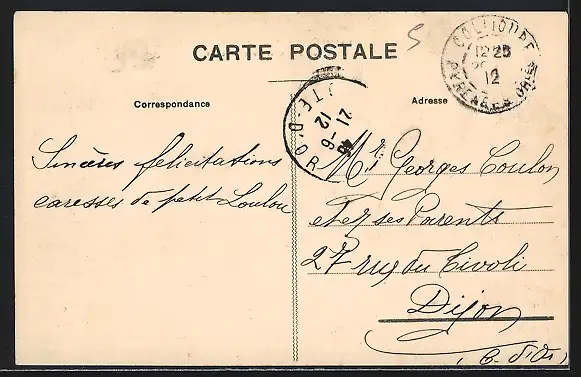 5
CARTE POSTALE
COLLIOURE
12 25
12
PYRÉNÉES ORles
CÔTE-D'OR
21-6
12
Correspondance
Adresse
Sincères félicitations
caresses de petit Loulou
Mr. Georges Coulon
chez ses Parents
27 rue du Tivoli
Dijon
(C. d'Or)